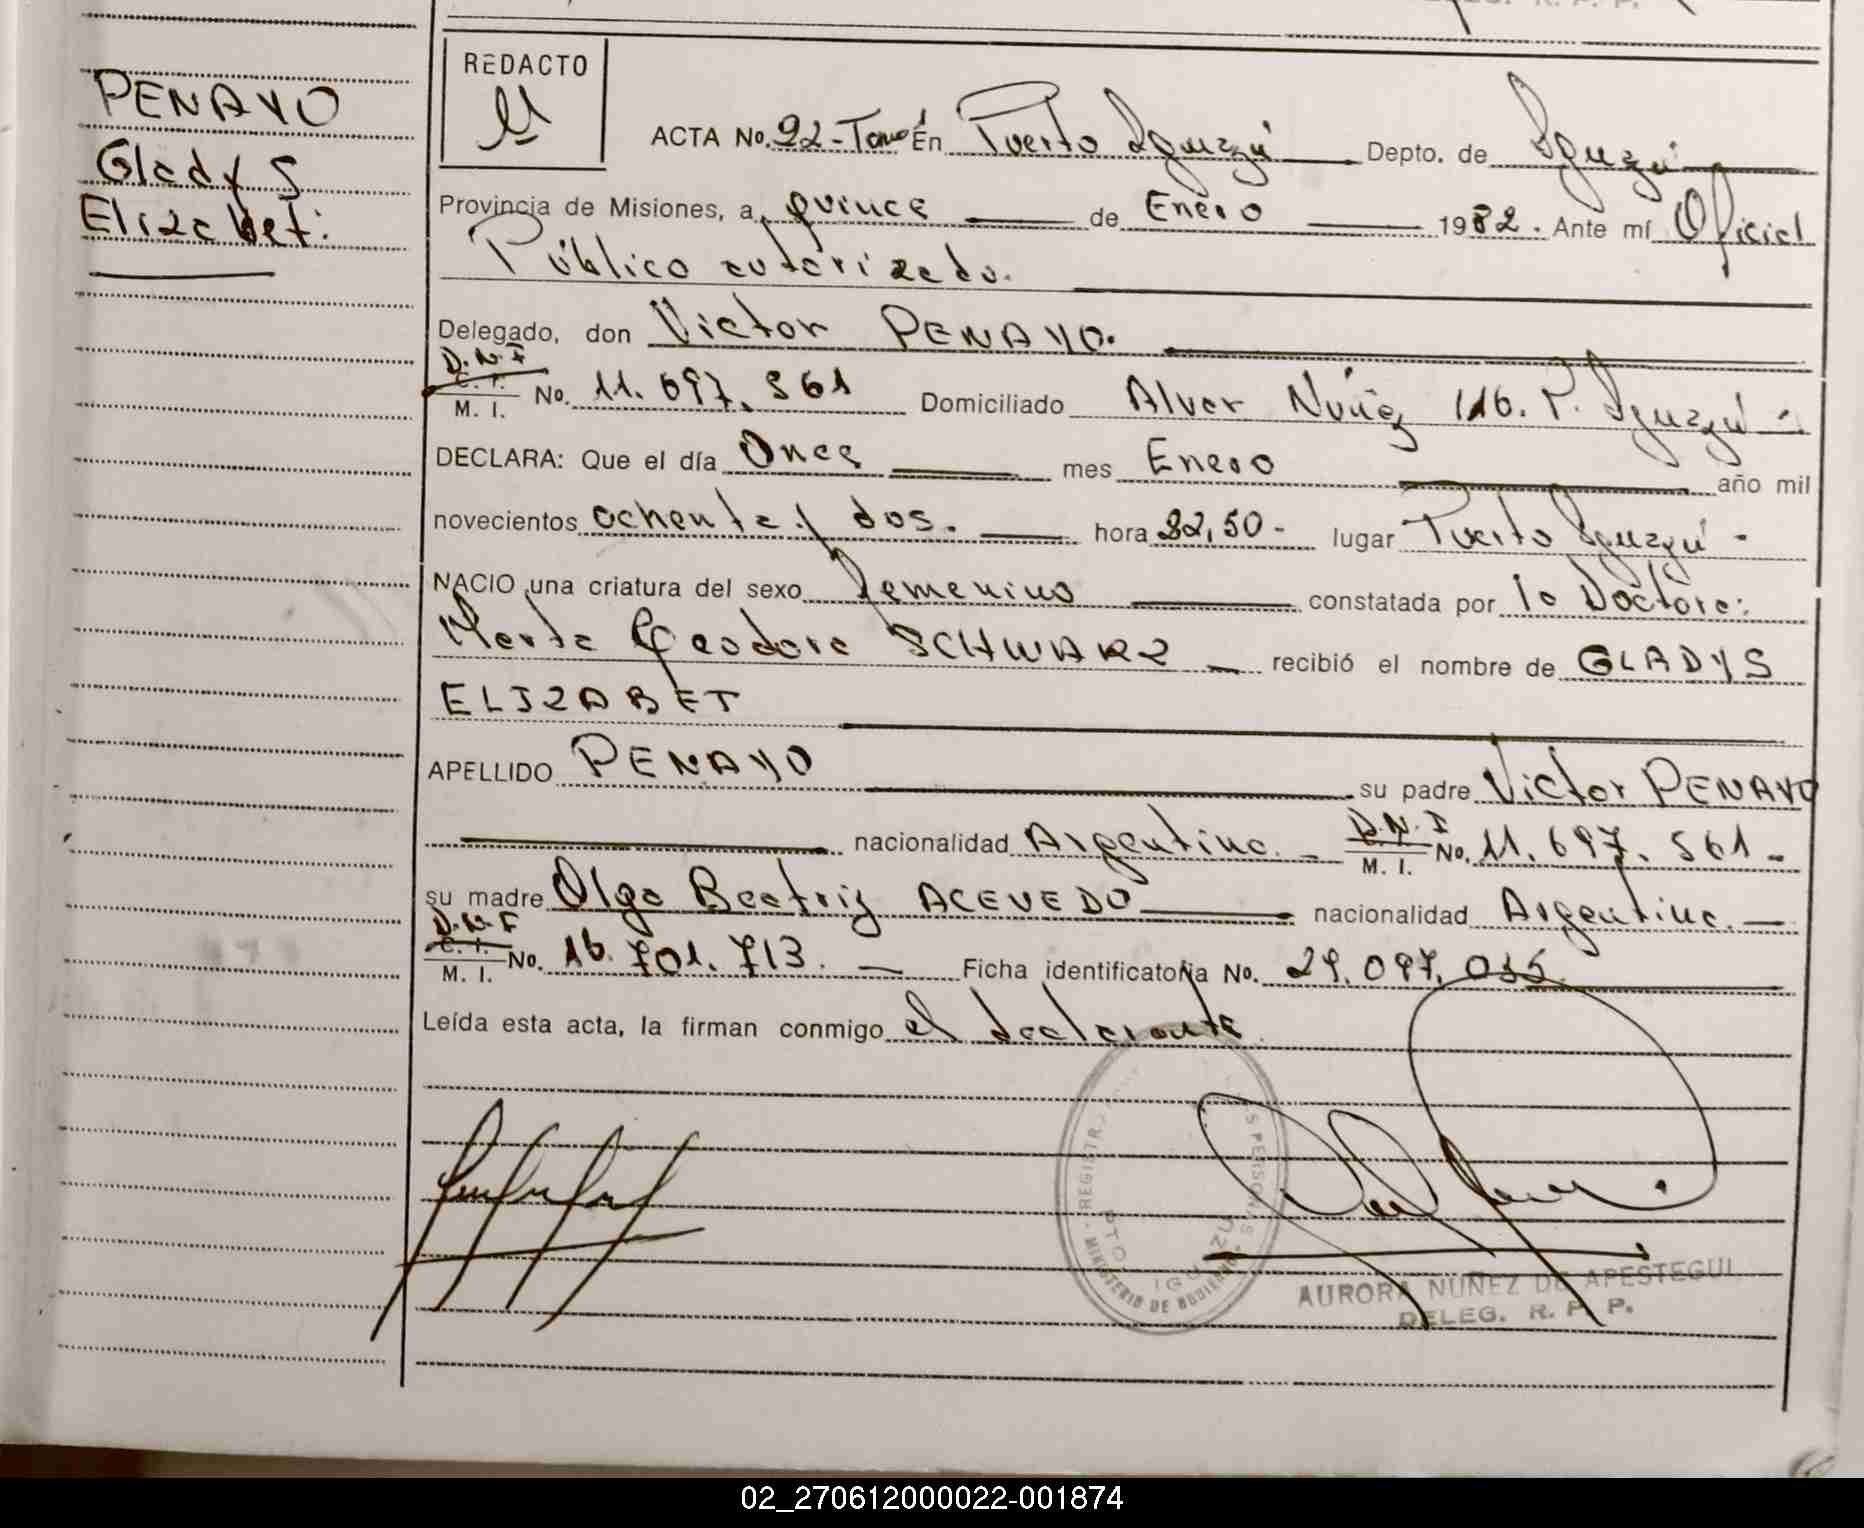 DELEG. R. P. P.
PENAYO
Gladys
Elizabet.
REDACTO
ACTA No. 92-Tomo I En Puerto Iguazú Depto. de Iguazú
Provincia de Misiones, a quince de Enero 1982. Ante mí Oficial
Público autorizado.
Delegado, don Victor PENAYO.
D.N.I
C. I.
M. I. No. 11.697.561 Domiciliado Alvar Nuñez 116. P. Iguazú -
DECLARA: Que el día Once mes Enero año mil
novecientos ochenta y dos. hora 22,50 - lugar Puerto Iguazú -
NACIO una criatura del sexo femenino constatada por la Doctora:
Marta Teodora SCHWARZ recibió el nombre de GLADYS
ELIZABET
APELLIDO PENAYO su padre Victor PENAYO
nacionalidad Argentina. D.N.I M. I. No. 11.697.561 -
su madre Olga Beatriz ACEVEDO nacionalidad Argentina.
D.N.I
C. I.
M. I. No. 16.701.713. Ficha identificatoria No. 29.097.035
Leída esta acta, la firman conmigo el declarante.
MINISTERIO DE GOBIERNO
PTO. IGUAZU
AURORA NUÑEZ DE APESTEGUI
DELEG. R. P. P.
02_270612000022-001874